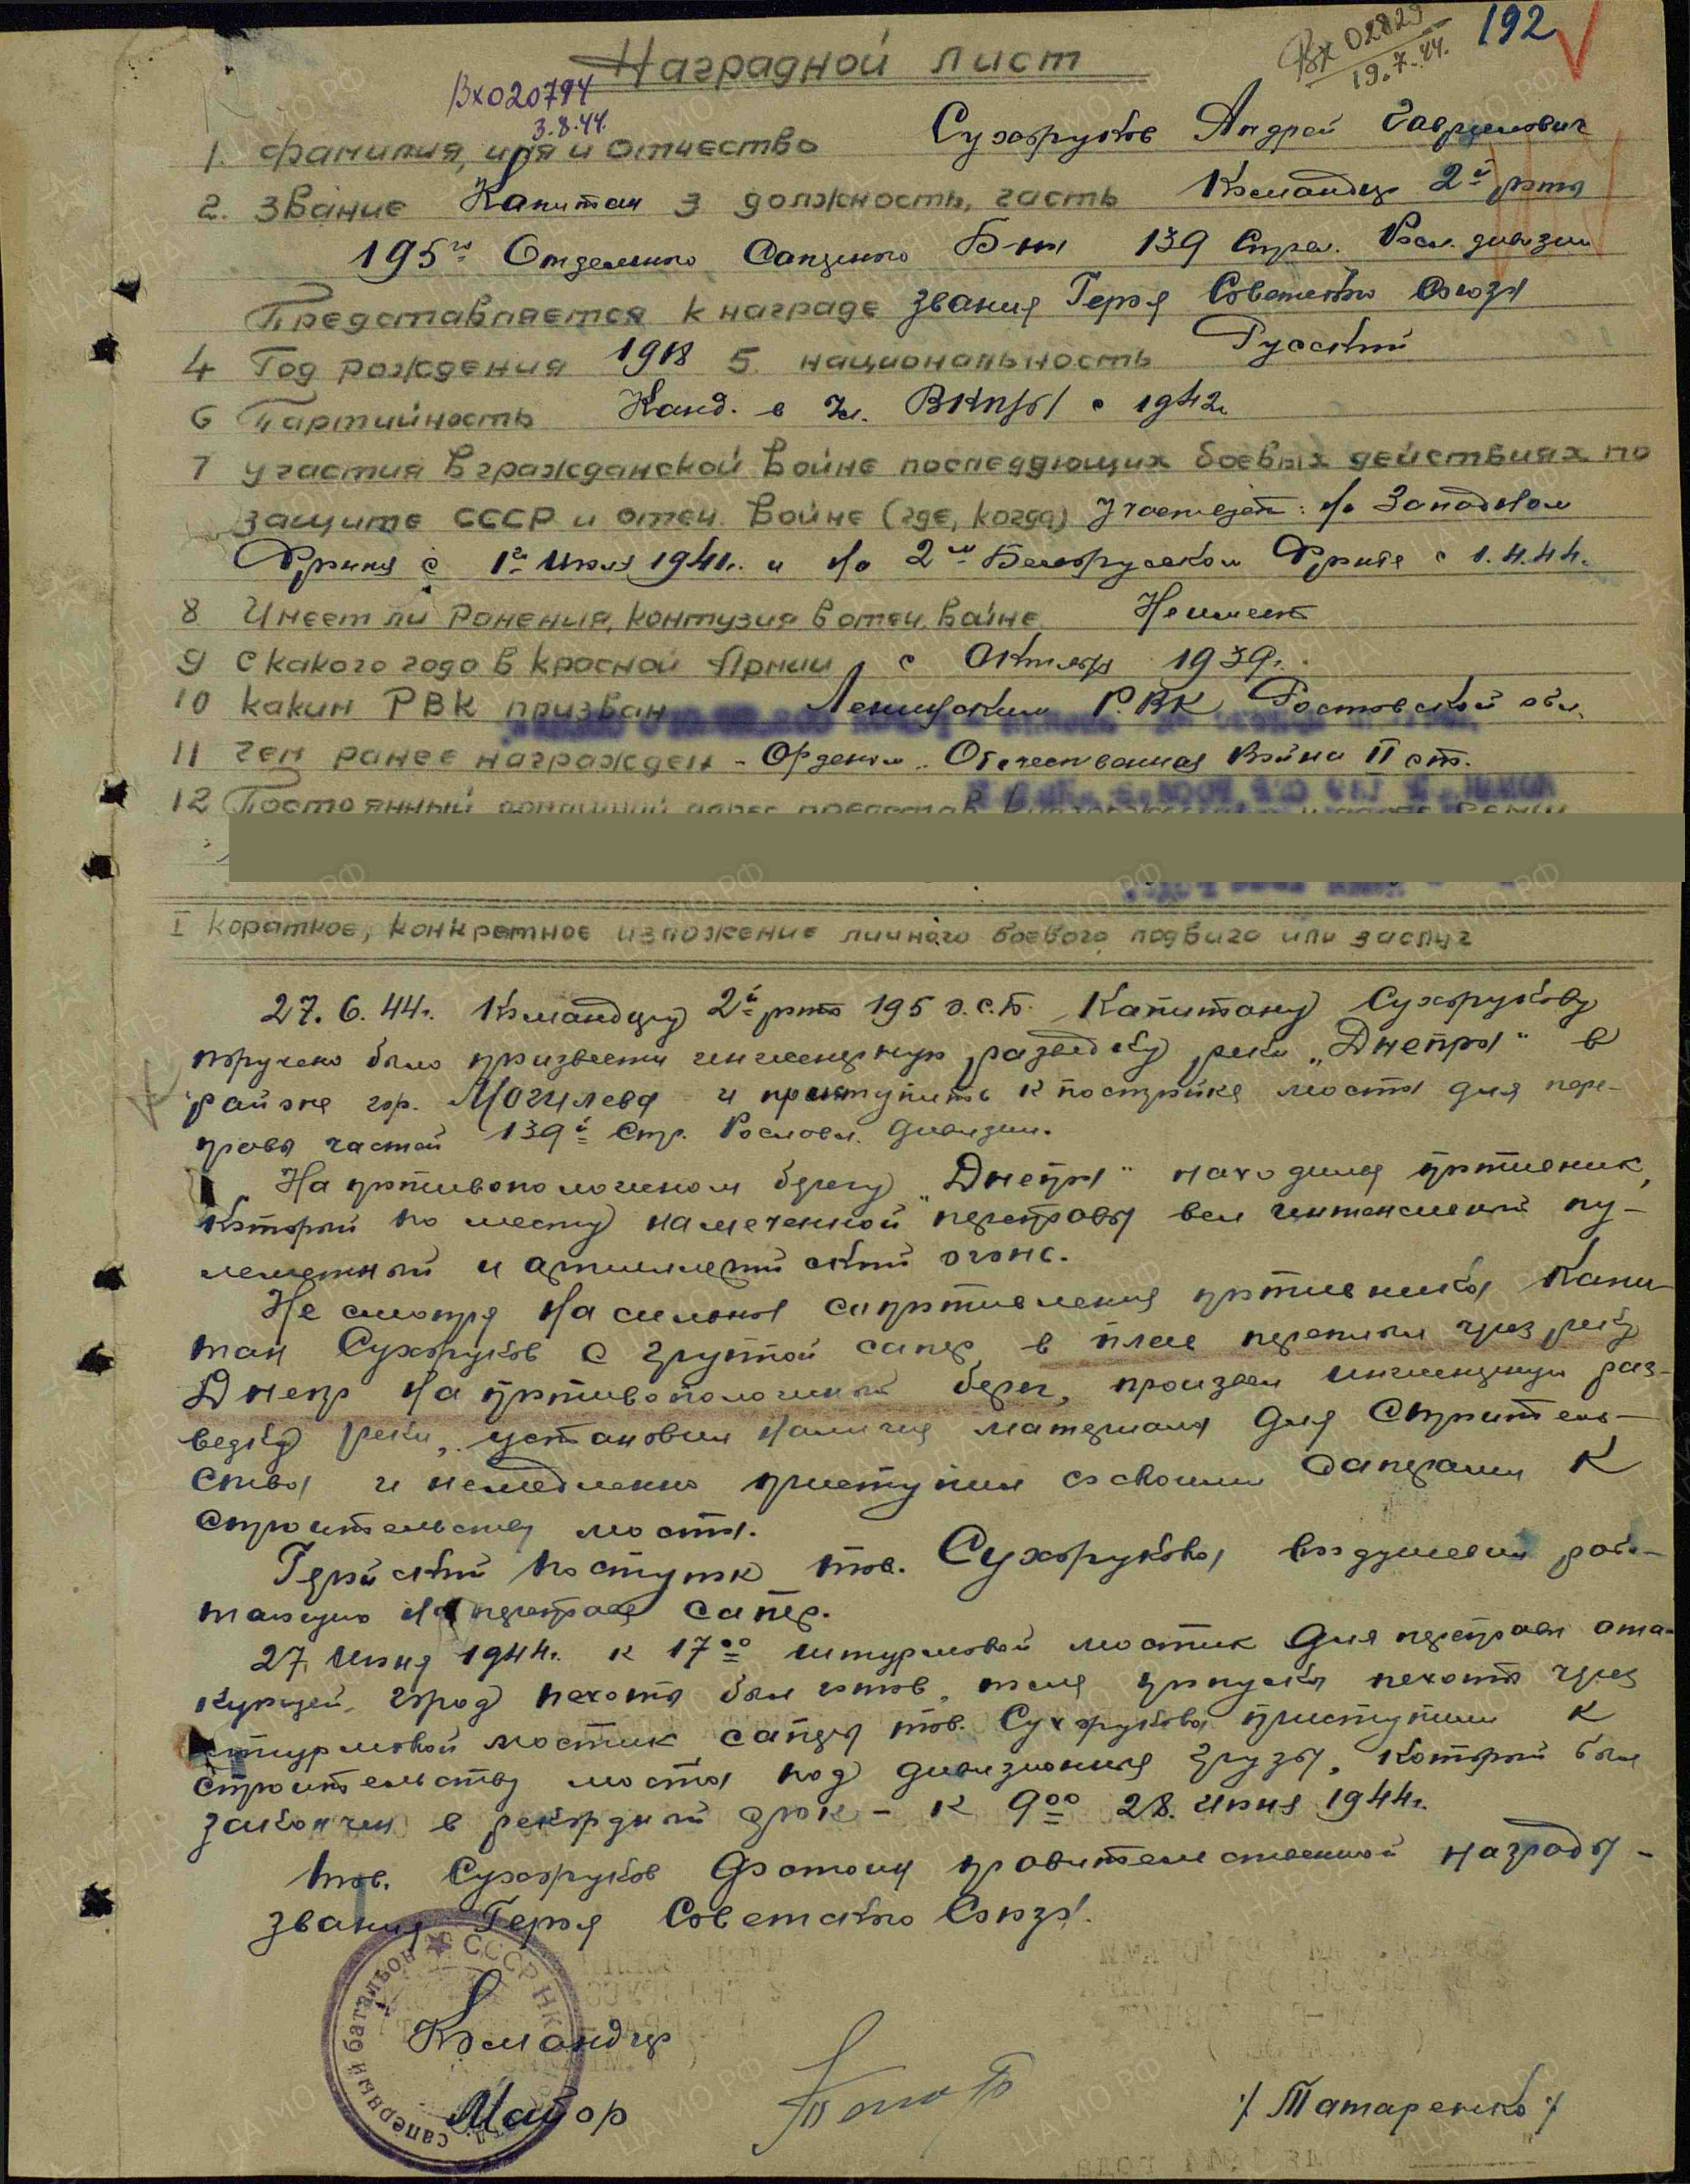 192
Вх 02829
19.7.44.
Наградной лист
Вх020794
3.8.44.
1. Фамилия, имя и отчество Сухоруков Андрей Гаврилович
2. Звание Капитан 3 должность, часть Командир 2й роты
195го Отдельного Саперного Б-на 139 Стрел. Росл. дивизии
Представляется к награде звания Героя Советского Союза
4 Год рождения 1918 5. национальность Русский
6 Партийность Канд. в чл. ВКП/б/ с 1942г.
7 участия в гражданской войне последующих боевых действиях по
защите СССР и отеч. войне (где, когда) участвует: На Западном
Фронте с 1го Июля 1941г. и На 2м Белорусском Фронте с 1.4.44.
8 Имеет ли ранения, контузия в отеч. войне Не имеет
9 С какого года в Красной Армии с Октября 1939г.
10 каким РВК призван Ленинским РВК Ростовской обл.
11 чем ранее награжден - Орденом „Отечественная Война II ст.
12 Постоянный домашний адрес представ. к награждению и адрес семьи
I короткое, конкретное изложение личного боевого подвига или заслуг
27.6.44г. Командиру 2й роты 195 о.с.б. Капитану Сухорукову
поручено было произвести инженерную разведку реки „Днепра" в
районе гор. Могилева и приступить к постройке моста для пере-
правы частей 139й Стр. Рославл. дивизии.
На противоположном берегу „Днепра" находился противник,
Который по месту намеченной переправы вел интенсивный пу-
леметный и артиллерийский огонь.
Не смотря на сильное сопротивления противника Капи-
тан Сухоруков с группой сапер, в плав переплыл через реку
Днепр на противоположный берег, произвел инженерную раз-
ведку реки, установил наличия материала для Строитель-
ства и немедленно приступил со своими саперами к
строительству моста.
Геройский поступок тов. Сухорукова воодушевил рабо-
тающих на переправе сапер.
27 Июня 1944г. к 17⁰⁰ штурмовой мостик для переправы ата-
кующей город пехоты был готов, после пропуска пехоты через
штурмовой мостик саперы тов. Сухорукова приступили к
строительству моста под дивизионные грузы, который был
закончен в рекордный срок - к 9⁰⁰ 28. Июня 1944г.
Тов. Сухоруков достоин правительственной награды -
звания Героя Советского Союза.
СССР НК
саперный батальон
Командир
Майор /Татаренко/